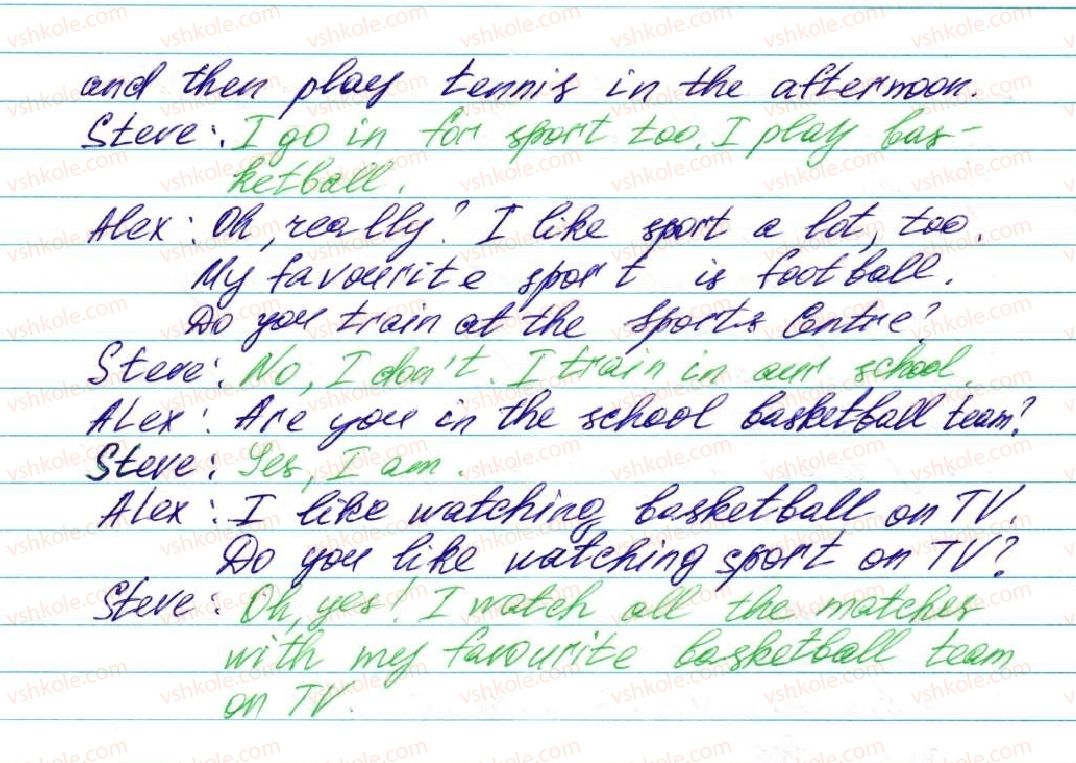 and then play tennis in the afternoon.
Steve: I go in for sport too. I play bas-
ketball.
Alex: Oh, really? I like sport a lot, too.
My favourite sport is football.
Do you train at the Sports Centre?
Steve: No, I don't. I train in our school.
Alex: Are you in the school basketball team?
Steve: Yes, I am.
Alex: I like watching basketball on TV.
Do you like watching sport on TV?
Steve: Oh, yes! I watch all the matches
with my favourite basketball team
on TV.